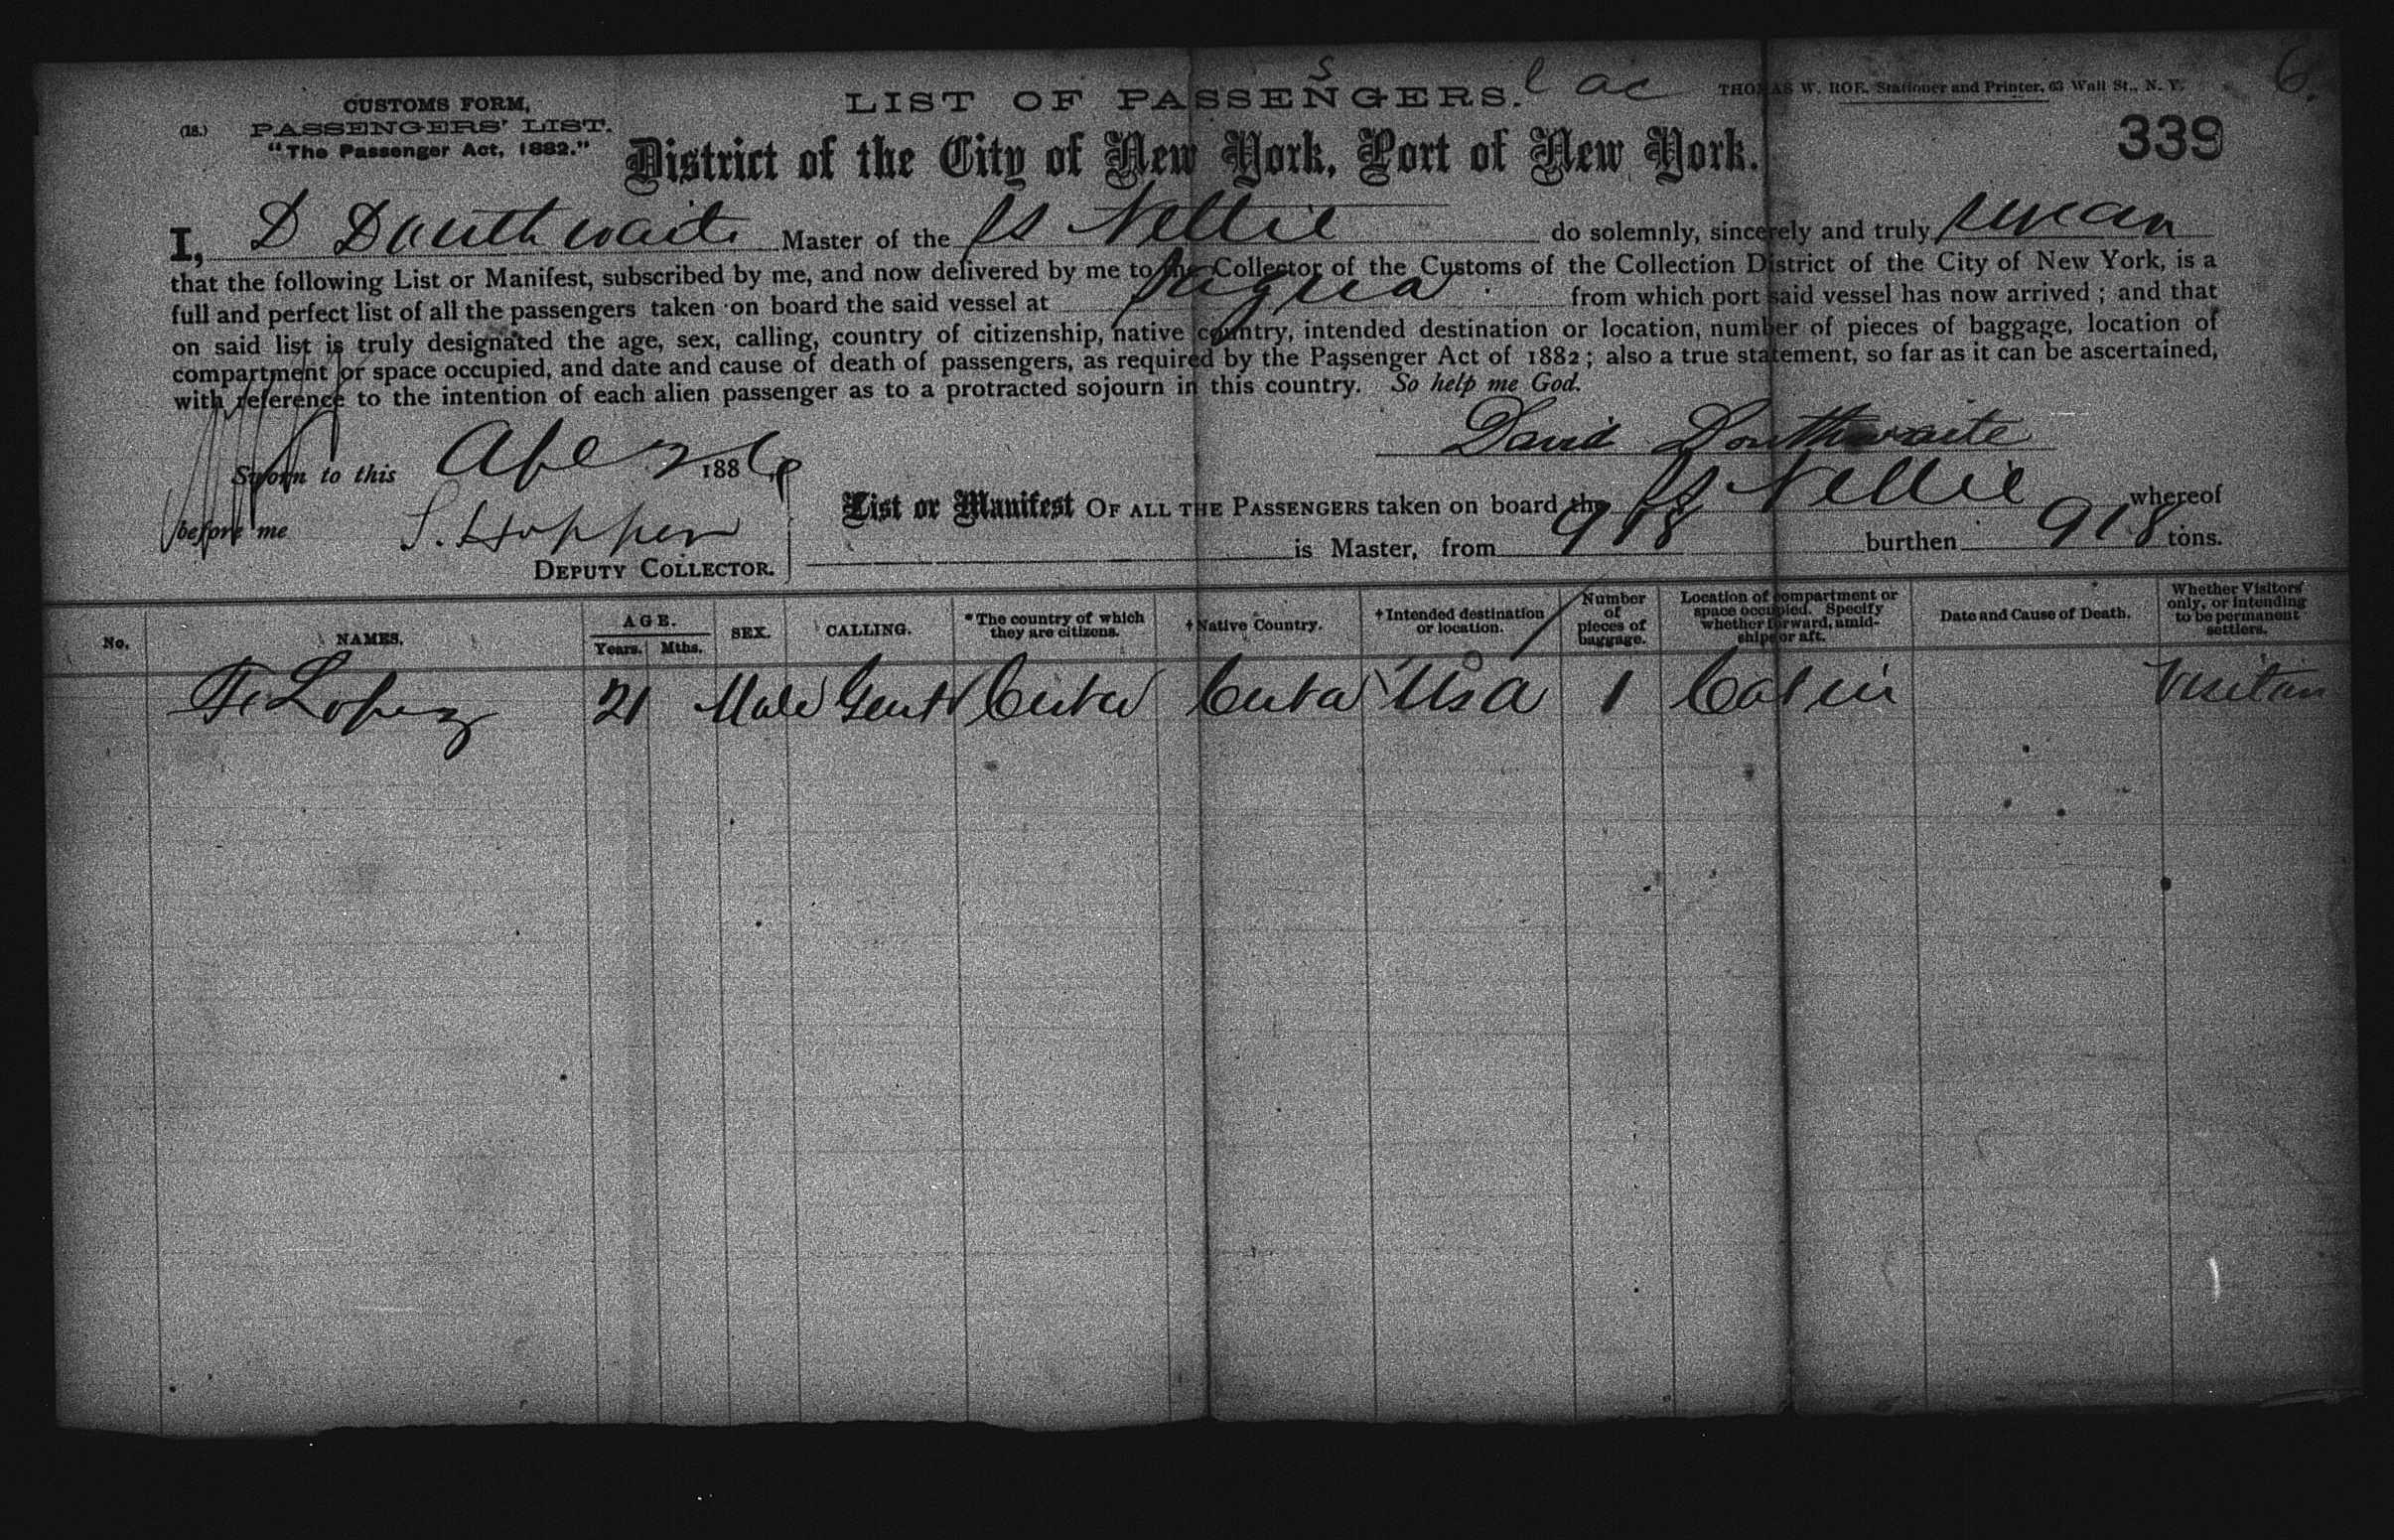 CUSTOMS FORM,
(18.) PASSENGERS' LIST.
"The Passenger Act, 1882."
S
LIST OF PASSENGERS.
THOMAS W. ROE, Stationer and Printer, 63 Wall St., N. Y.
6.
District of the City of New York, Port of New York.
339
I, D Douthwaite Master of the SS Nellie do solemnly, sincerely and truly swear
that the following List or Manifest, subscribed by me, and now delivered by me to the Collector of the Customs of the Collection District of the City of New York, is a
full and perfect list of all the passengers taken on board the said vessel at Sagua from which port said vessel has now arrived ; and that
on said list is truly designated the age, sex, calling, country of citizenship, native country, intended destination or location, number of pieces of baggage, location of
compartment or space occupied, and date and cause of death of passengers, as required by the Passenger Act of 1882 ; also a true statement, so far as it can be ascertained,
with reference to the intention of each alien passenger as to a protracted sojourn in this country. So help me God.
David Douthwaite
Sworn to this 1886
before me S. Hopper
DEPUTY COLLECTOR.
List or Manifest OF ALL THE PASSENGERS taken on board the SS Nellie whereof
is Master, from 918 burthen 918 tons.
No. NAMES. AGE. Years. Mths. SEX. CALLING. *The country of which they are citizens. †Native Country. †Intended destination or location. Number of pieces of baggage. Location of compartment or space occupied. Specify whether forward, amidships or aft. Date and Cause of Death. Whether Visitors only, or intending to be permanent settlers.
Lopez 21 Male Gent Cuba Cuba USA 1 Cabin